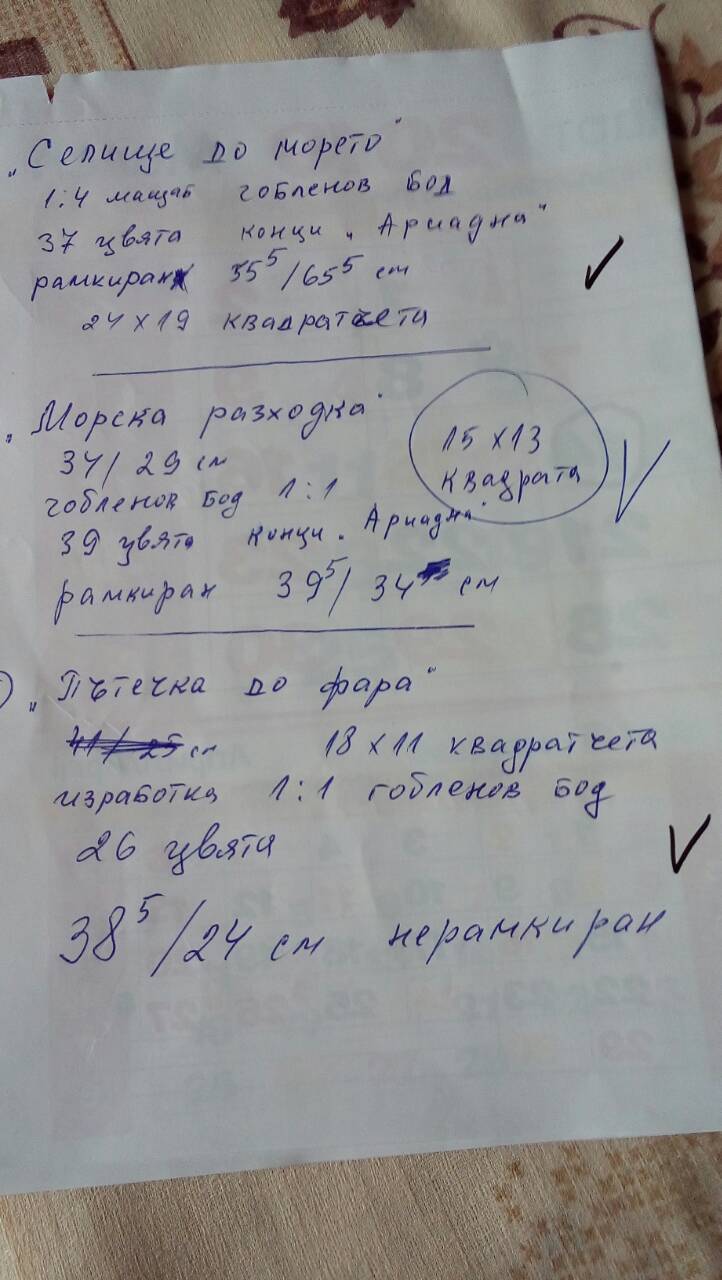 „Селище до морето"
1:4 мащаб гобленов бод
37 цвята конци „Ариадна"
рамкиран 35⁵/65⁵ см
24 x 19 квадратчета
„Морска разходка"
34/29 см
15 x 13
квадрата
гобленов бод 1:1
39 цвята конци „Ариадна"
рамкиран 39⁵/34 см
„Пътечка до фара"
41/25 см 18 x 11 квадратчета
изработка 1:1 гобленов бод
26 цвята
38⁵/24 см нерамкиран